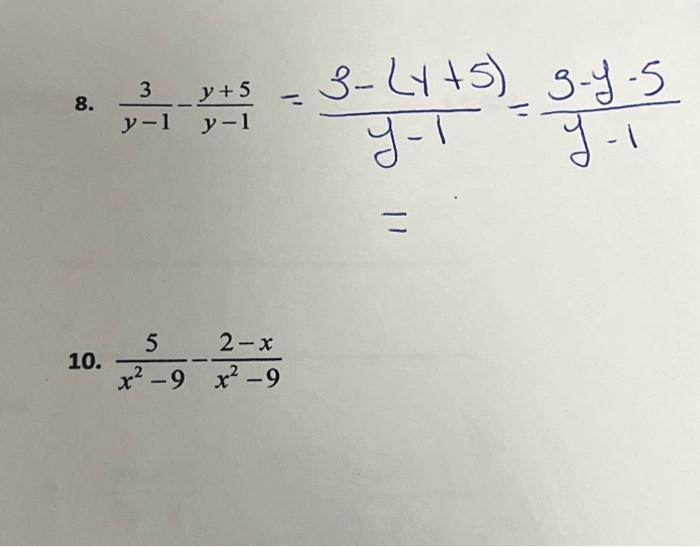 8. 3/(y−1) − (y+5)/(y−1) = (3-(y+5))/(y-1) = (3-y-5)/(y-1)
=
10. 5/(x²−9) − (2−x)/(x²−9)